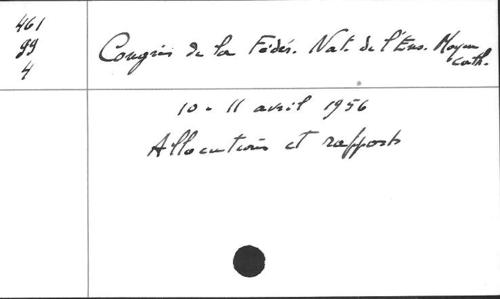 461
99
4
Congrès de la Fédér. Nat. de l'Ens. Moyen
cath.
10 - 11 avril 1956
Allocutions et rapports